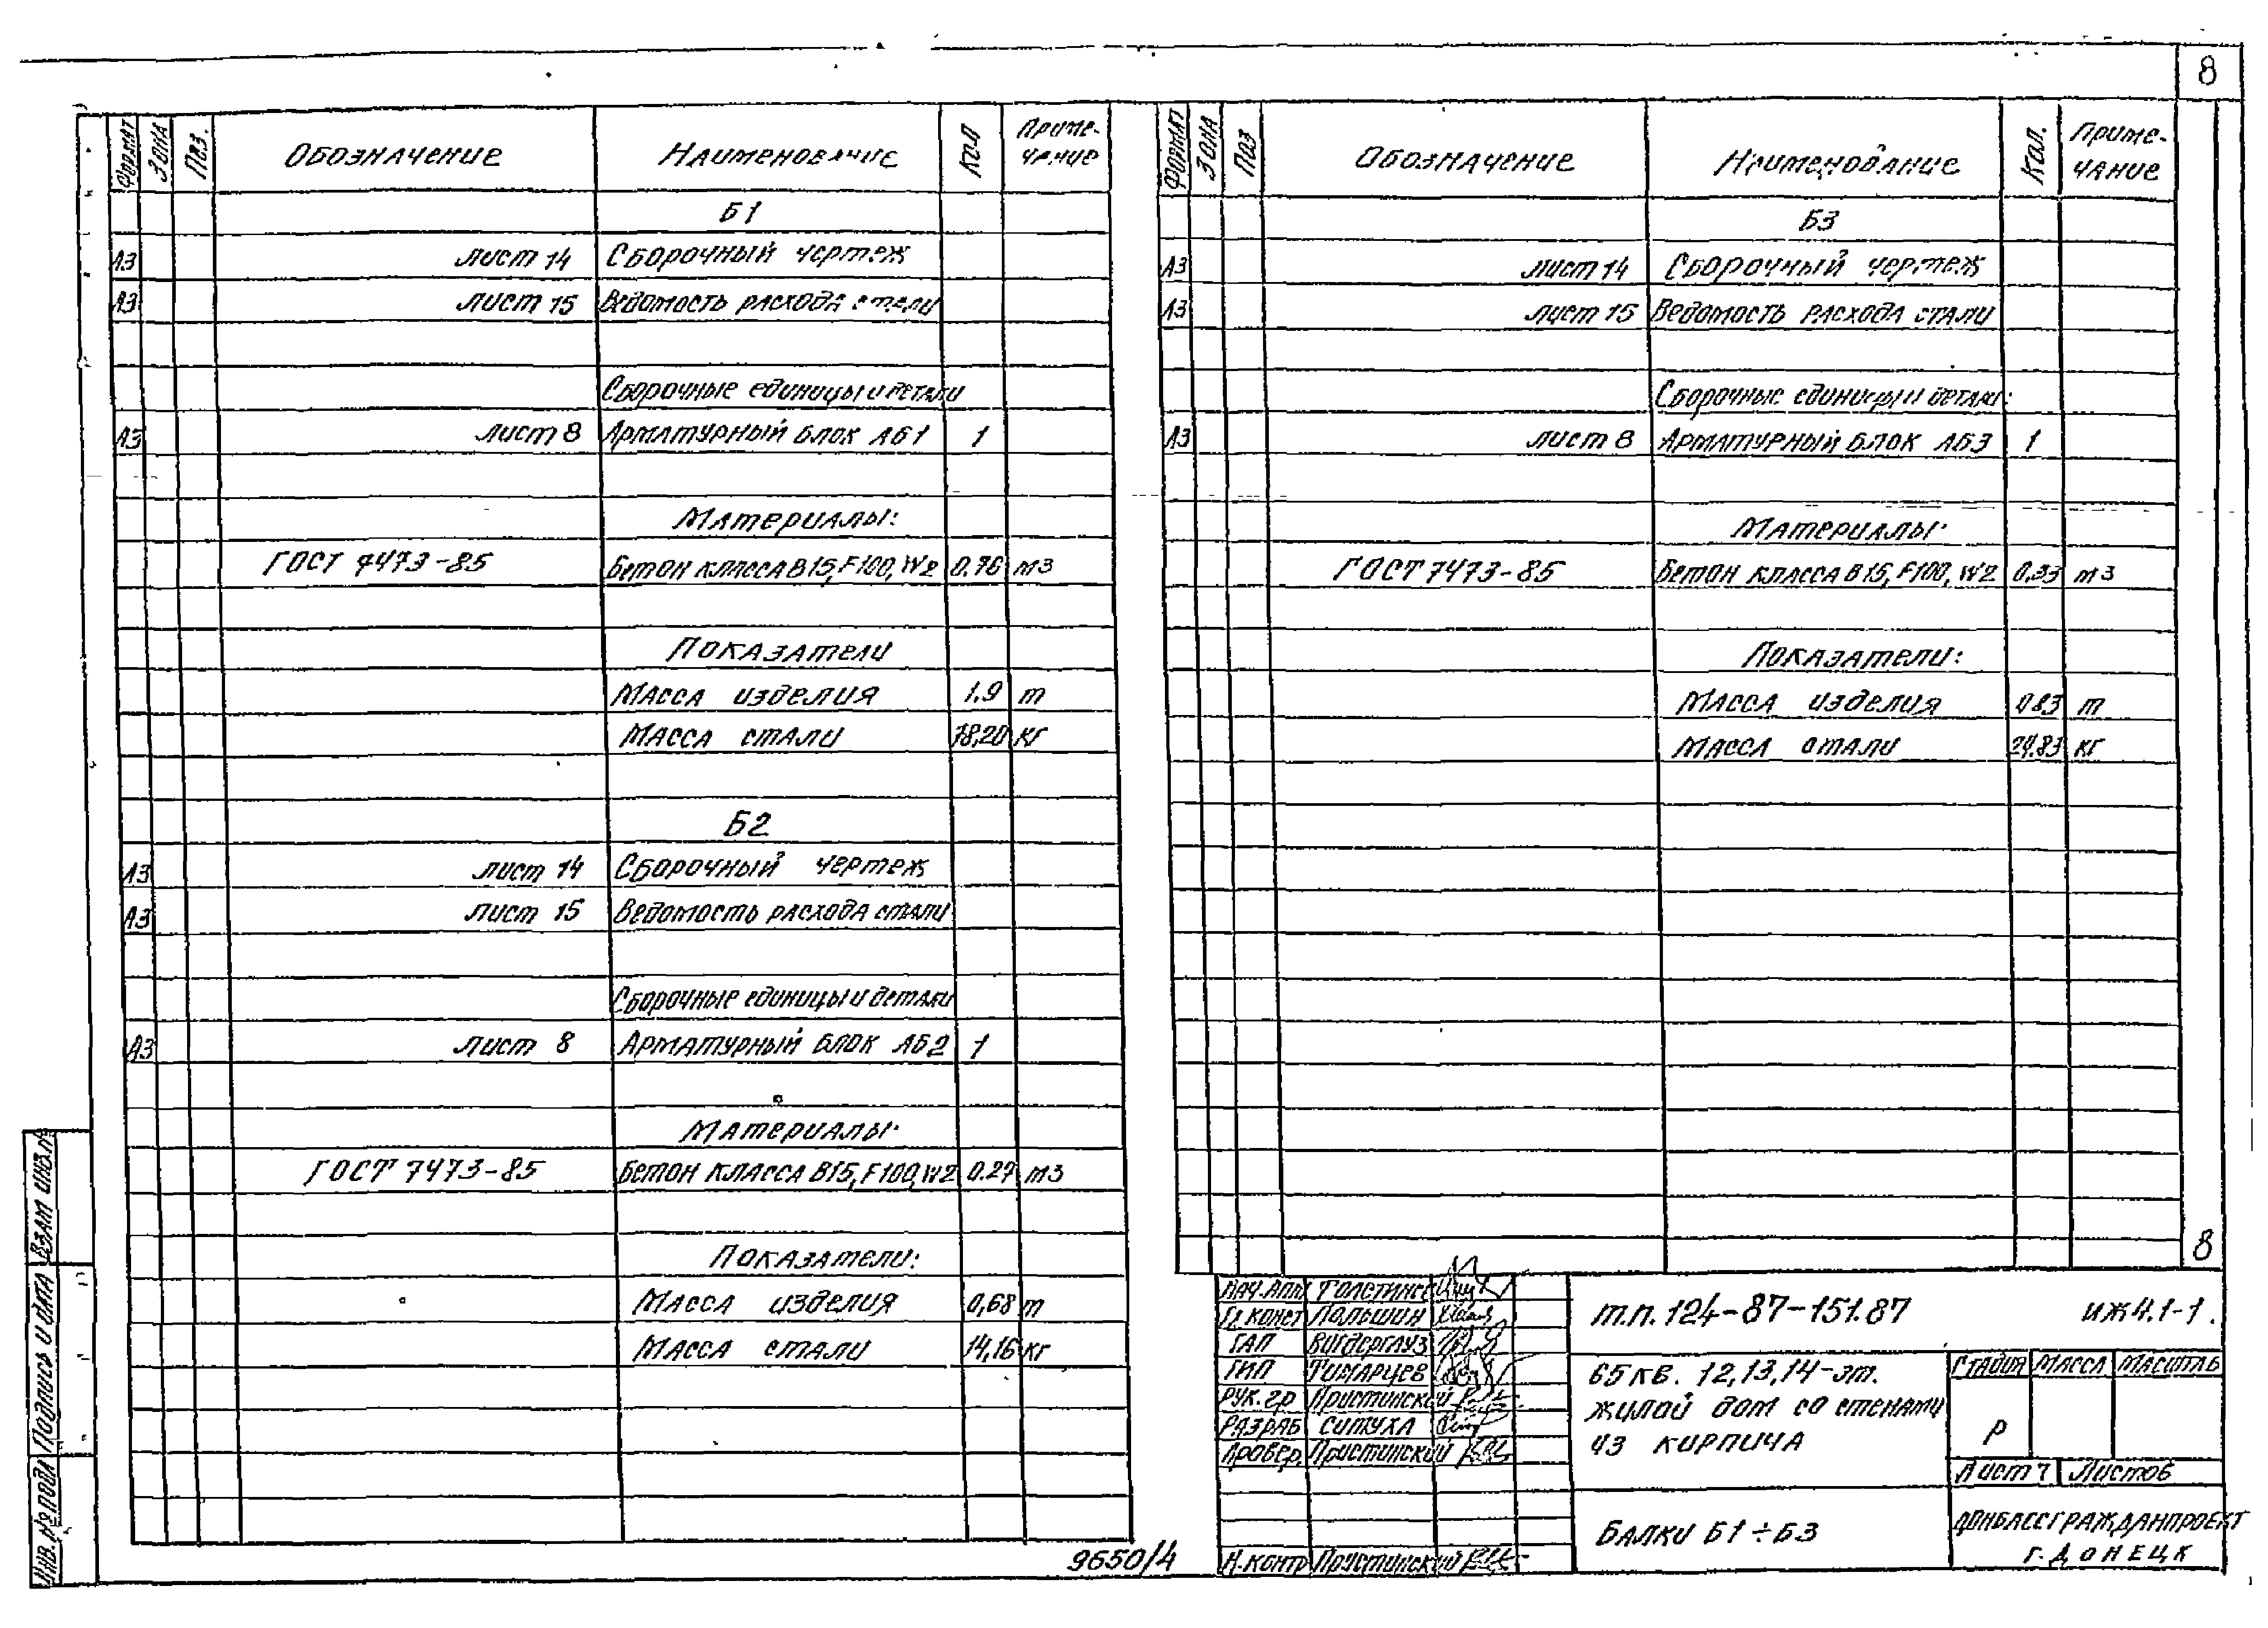 8
Формат Зона Поз. Обозначение Наименование Кол Приме-
чание
Б1
А3 лист 14 Сборочный чертеж
А3 лист 15 Ведомость расхода стали
Сборочные единицы и детали
А3 лист 8 Арматурный блок АБ1 1
Материалы:
ГОСТ 7473-85 Бетон класса В15, F100, W2 0.76 м3
Показатели
Масса изделия 1.9 т
Масса стали 78,20 кг
Б2
А3 лист 14 Сборочный чертеж
А3 лист 15 Ведомость расхода стали
Сборочные единицы и детали
А3 лист 8 Арматурный блок АБ2 1
Материалы:
ГОСТ 7473-85 Бетон класса В15, F100, W2 0.27 м3
Показатели:
Масса изделия 0,68 т
Масса стали 14,16 кг
Формат Зона Поз Обозначение Наименование Кол. Приме-
чание
Б3
А3 лист 14 Сборочный чертеж
А3 лист 15 Ведомость расхода стали
Сборочные единицы и детали:
А3 лист 8 Арматурный блок АБ3 1
Материалы:
ГОСТ 7473-85 Бетон класса В15, F100, W2 0,33 м3
Показатели:
Масса изделия 0,83 т
Масса стали 24,83 кг
8
Нач.АПМ Толстинс
Гл.конст Польшин
ГАП Вигдергауз
ГИП Тимарцев
Рук.гр Пристинский
Разраб Ситуха
Провер. Пристинский
Н.контр Пристинский
т.п. 124-87-151.87 иж4.1-1.
65 кв. 12,13,14-эт.
жилой дом со стенами
из кирпича
Стадия Масса Масштаб
Р
Лист 7 Листов
Балки Б1÷Б3
Донбассгражданпроект
г. Донецк
Взам инв.№
Подпись и дата
Инв.№ подл
9650/4